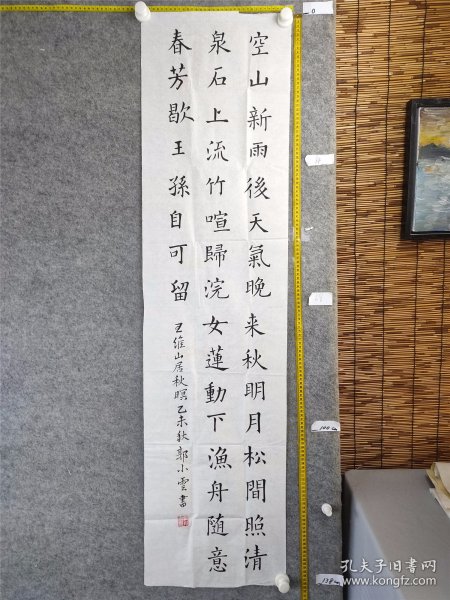 空山新雨後天氣晚来秋明月松間照清
泉石上流竹喧歸浣女蓮動下漁舟随意
春芳歇王孫自可留
王維山居秋暝乙未秋郭小雲書
0
100cm
138cm
孔夫子旧书网
www.kongfz.com